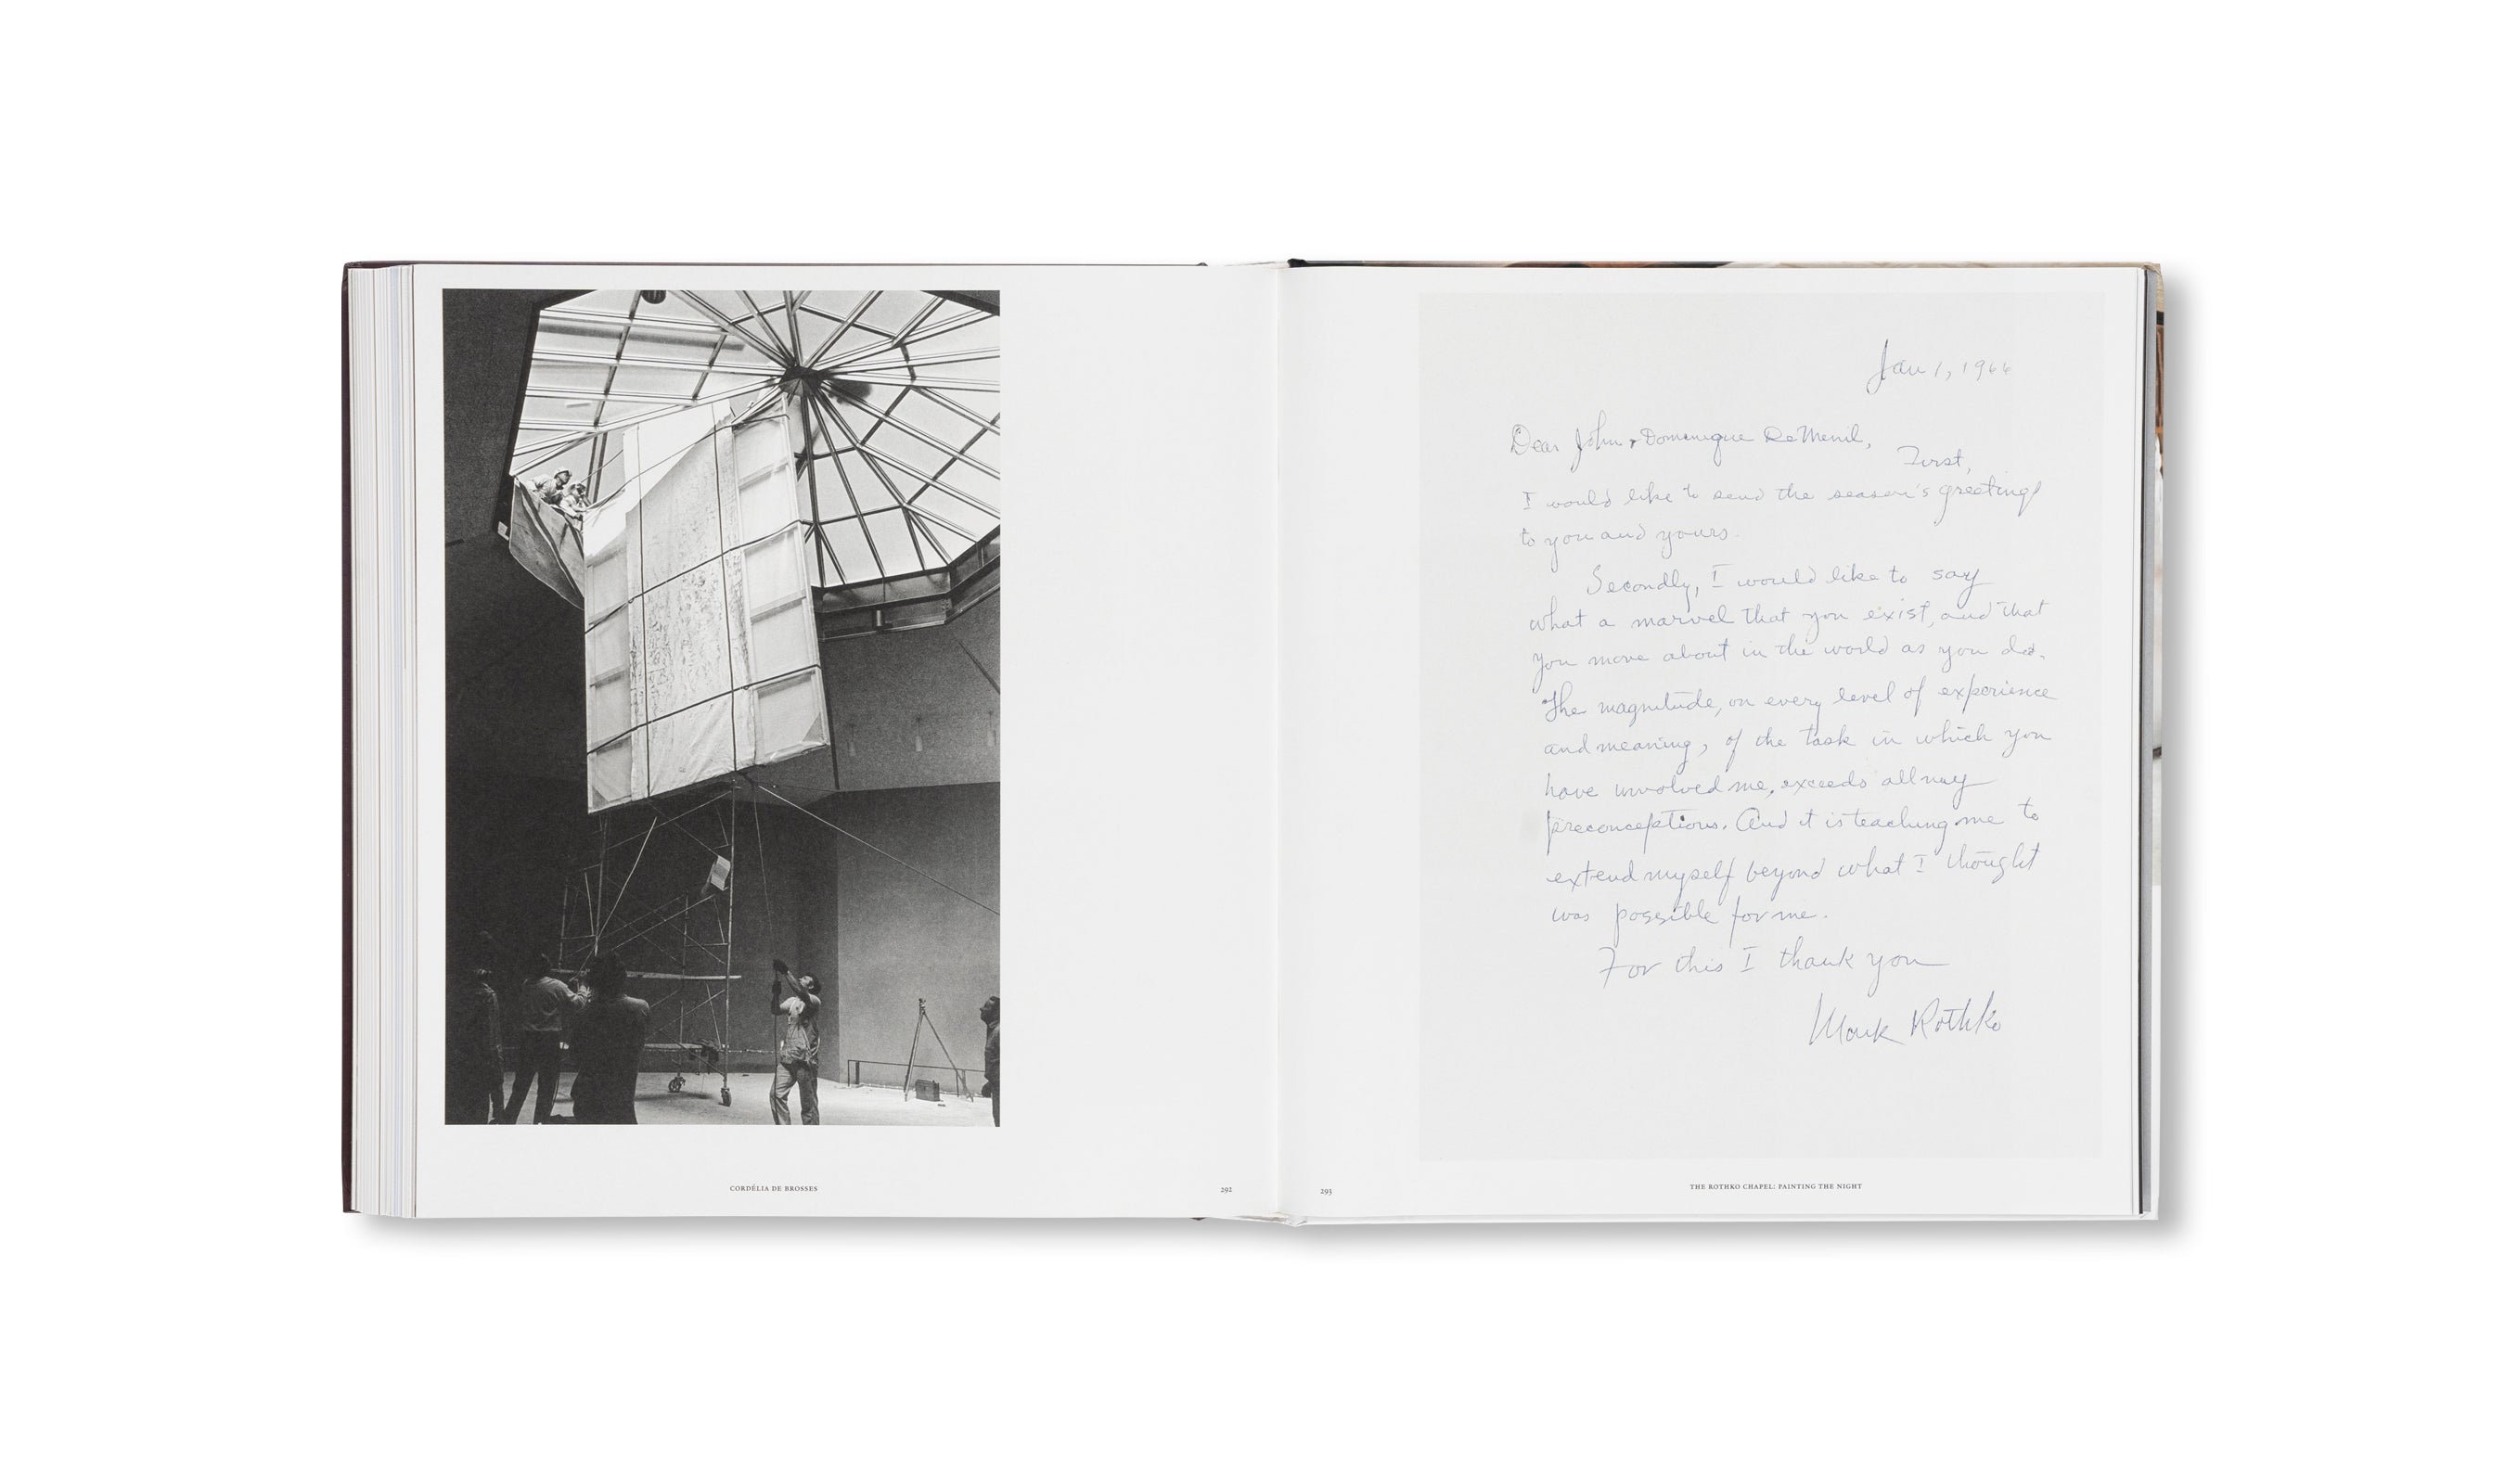 CORDÉLIA DE BROSSES
292
Jan 1, 1966
Dear John & Domenique De Menil,
First,
I would like to send the season's greetings
to you and yours.
Secondly, I would like to say
what a marvel that you exist, and that
you move about in the world as you do.
The magnitude, on every level of experience
and meaning, of the task in which you
have involved me, exceeds all my
preconceptions. And it is teaching me to
extend myself beyond what I thought
was possible for me.
For this I thank you
Mark Rothko
293
THE ROTHKO CHAPEL: PAINTING THE NIGHT